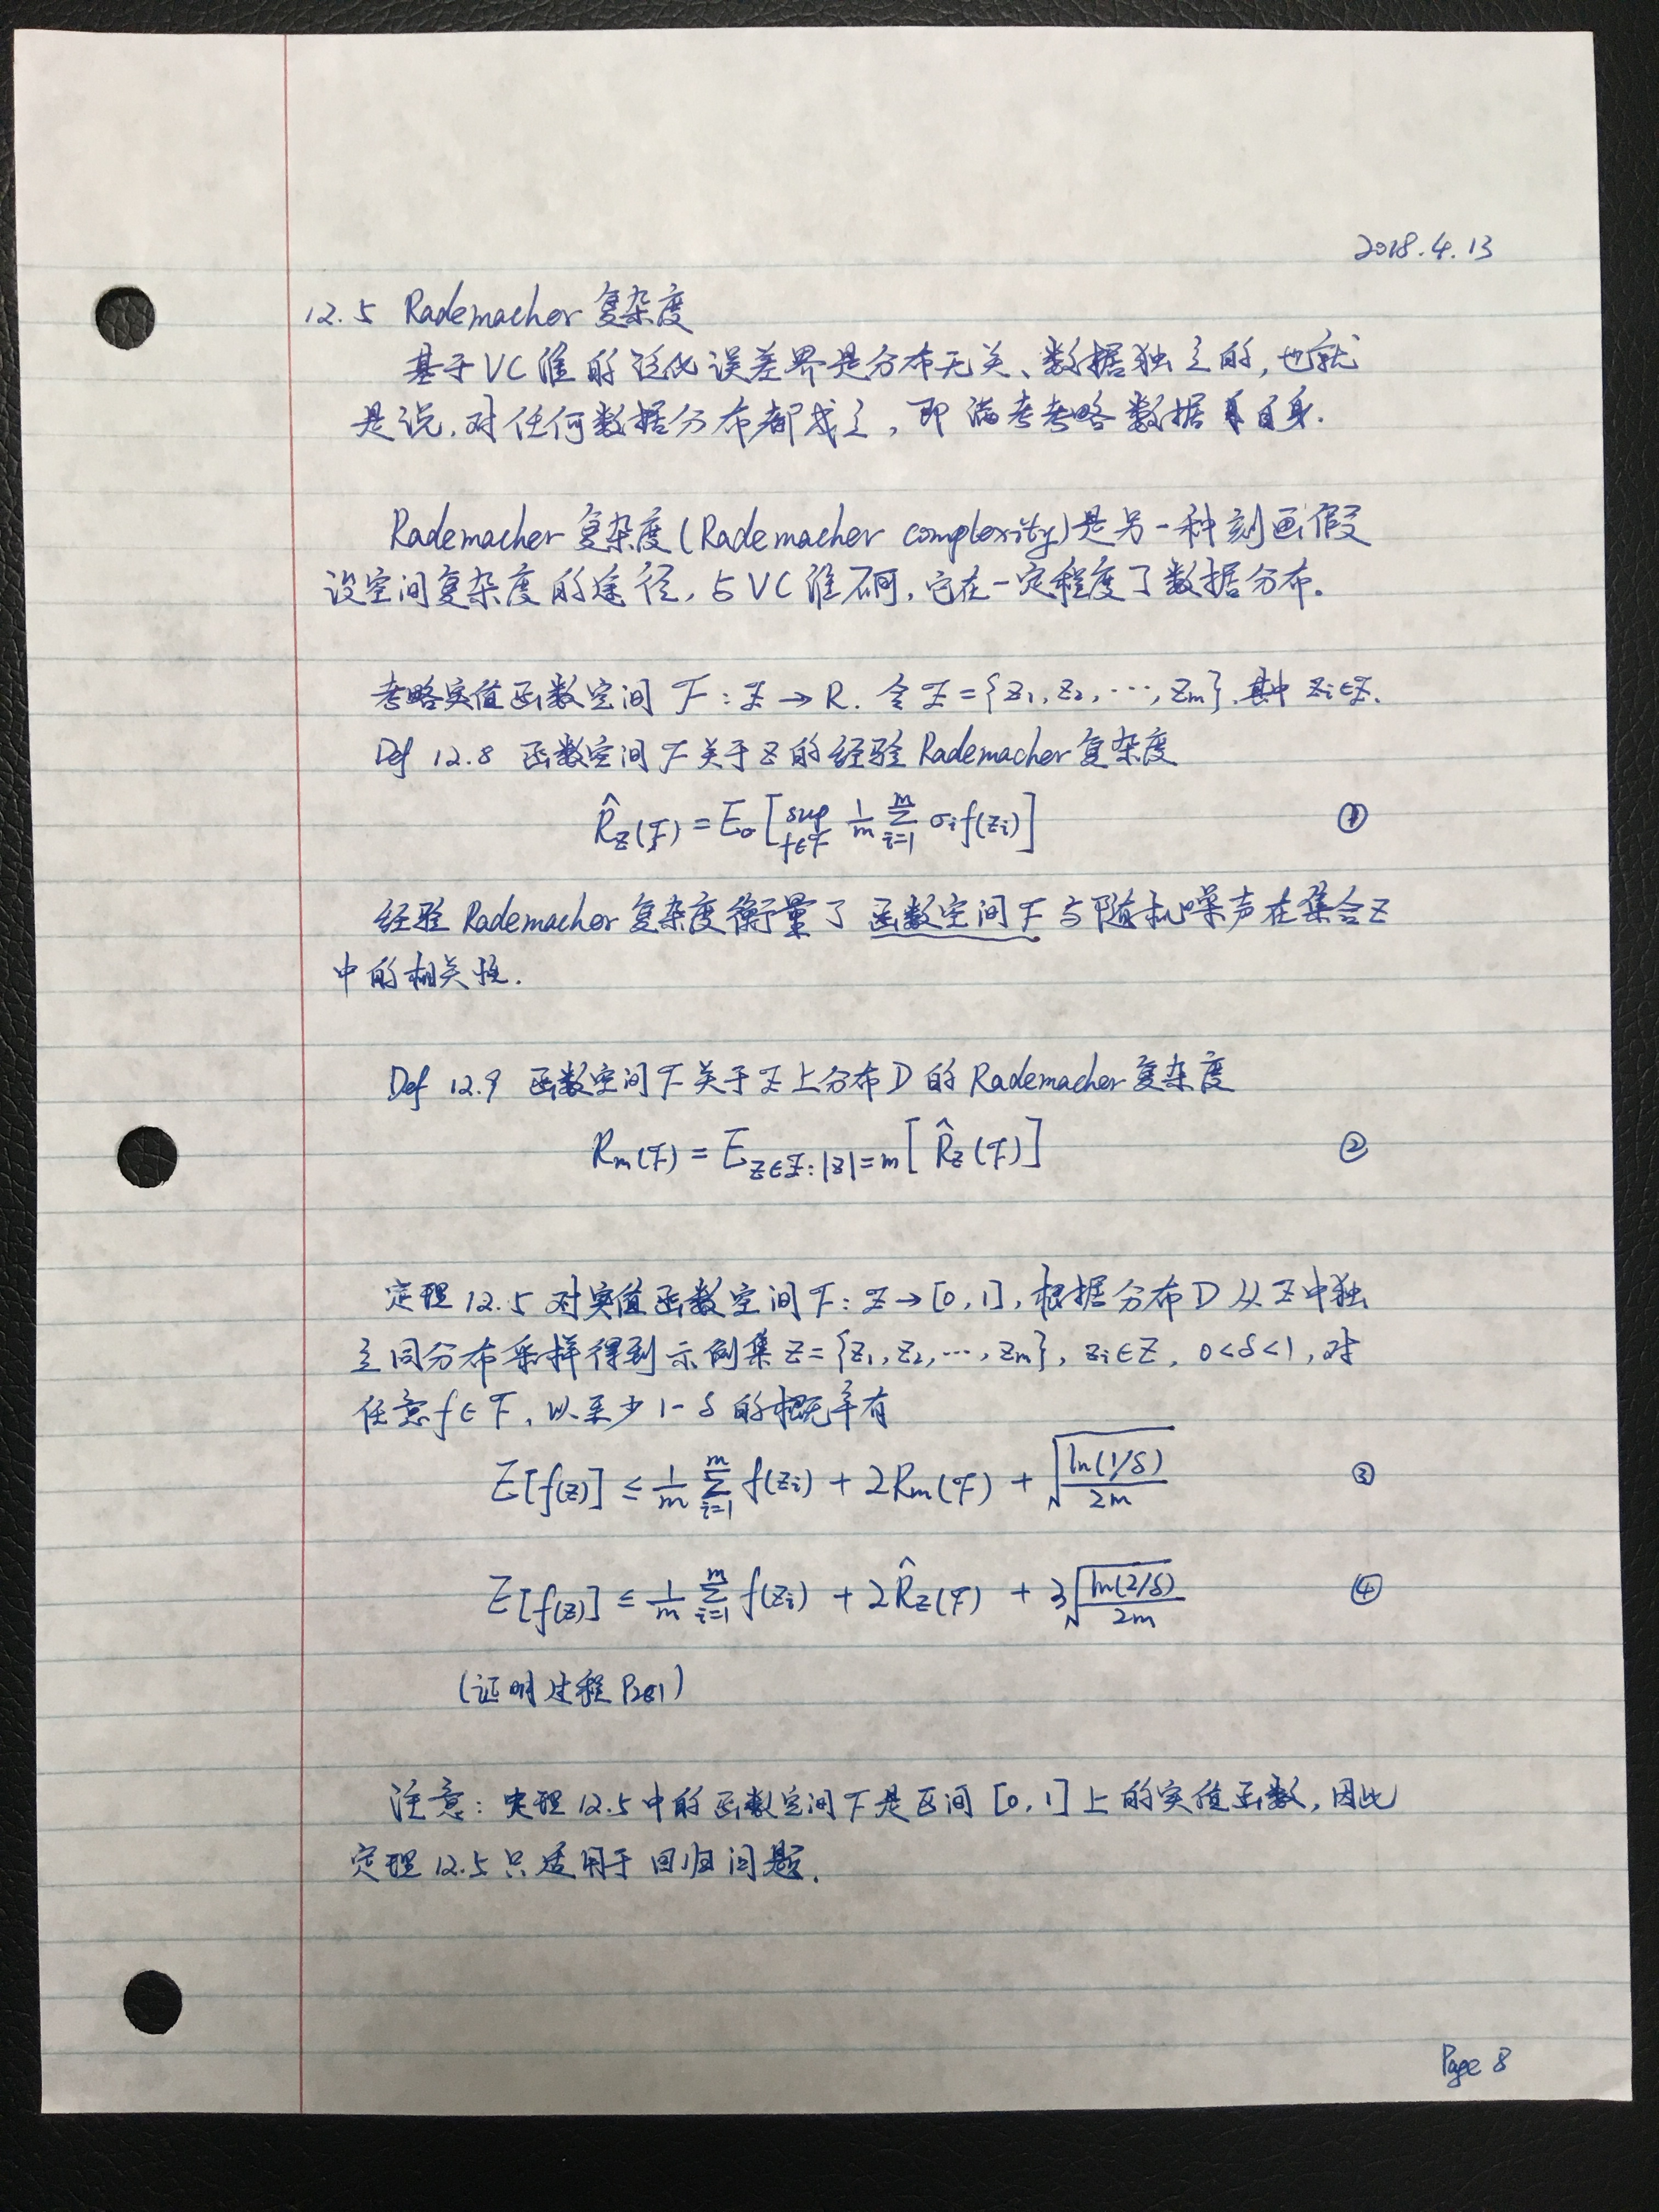 2018.4.13
12.5 Rademacher 复杂度
基于VC维的泛化误差界是分布无关、数据独立的，也就
是说，对任何数据分布都成立，即 考考略数据自身.
Rademacher 复杂度(Rademacher complexity)是另一种刻画假
设空间复杂度的途径，与VC维不同，它在一定程度了数据分布。
考略实值函数空间 F : Z → R. 令 Z = {z₁, z₂, ⋯, zm}, 其中 zi∈Z.
Def 12.8 函数空间F关于Z的经验Rademacher复杂度
R̂z(F) = Eσ [ sup f∈F 1/m Σ i=1 m σi f(zi) ] ①
经验Rademacher复杂度衡量了函数空间F与随机噪声在集合Z
中的相关性.
Def 12.9 函数空间F关于Z上分布D的Rademacher复杂度
Rm(F) = E Z∈Z:|Z|=m [ R̂z(F) ] ②
定理12.5 对实值函数空间F: Z→[0,1], 根据分布D从Z中独
立同分布采样得到示例集Z={z₁, z₂, ⋯, zm}, zi∈Z, 0<δ<1, 对
任意f∈F, 以至少1-δ的概率有
E[f(z)] ≤ 1/m Σ i=1 m f(zi) + 2Rm(F) + √(ln(1/δ)/2m) ③
E[f(z)] ≤ 1/m Σ i=1 m f(zi) + 2R̂z(F) + 3√(ln(2/δ)/2m) ④
(证明过程P281)
注意: 定理12.5中的函数空间F是区间[0,1]上的实值函数, 因此
定理12.5只适用于回归问题.
Page 8